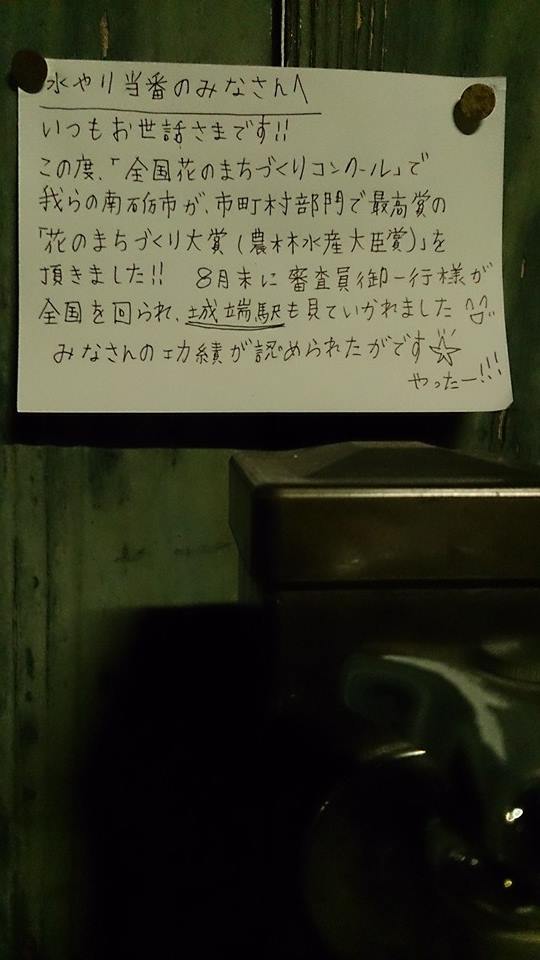 水やり当番のみなさんへ
いつもお世話さまです!!
この度、「全国花のまちづくりコンクール」で
我らの南砺市が、市町村部門で最高賞の
「花のまちづくり大賞(農林水産大臣賞)」を
頂きました!! 8月末に審査員御一行様が
全国を回られ、城端駅も見ていかれました
みなさんの功績が認められたがです☆
やったー!!!